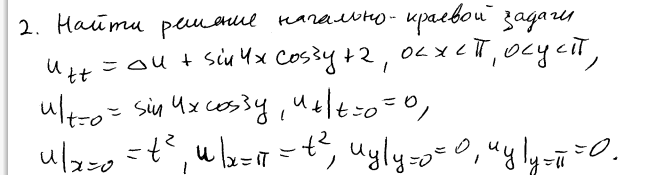 2. Найти решение начально-краевой задачи
u_tt = Δu + sin4x cos3y + 2, 0<x<π, 0<y<π,
u|_t=0 = sin4x cos3y, u_t|_t=0 = 0,
u|_x=0 = t², u|_x=π = t², u_y|_y=0 = 0, u_y|_y=π = 0.